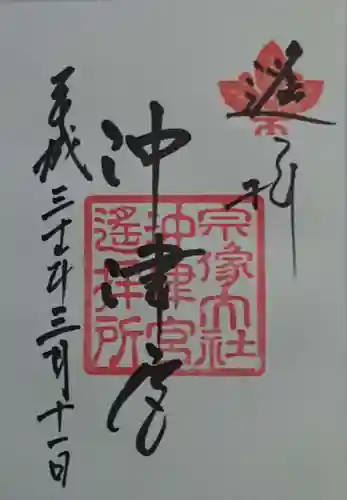 遥拝
沖津宮
平成三十年三月十一日
宗像大社
沖津宮
遥拝所